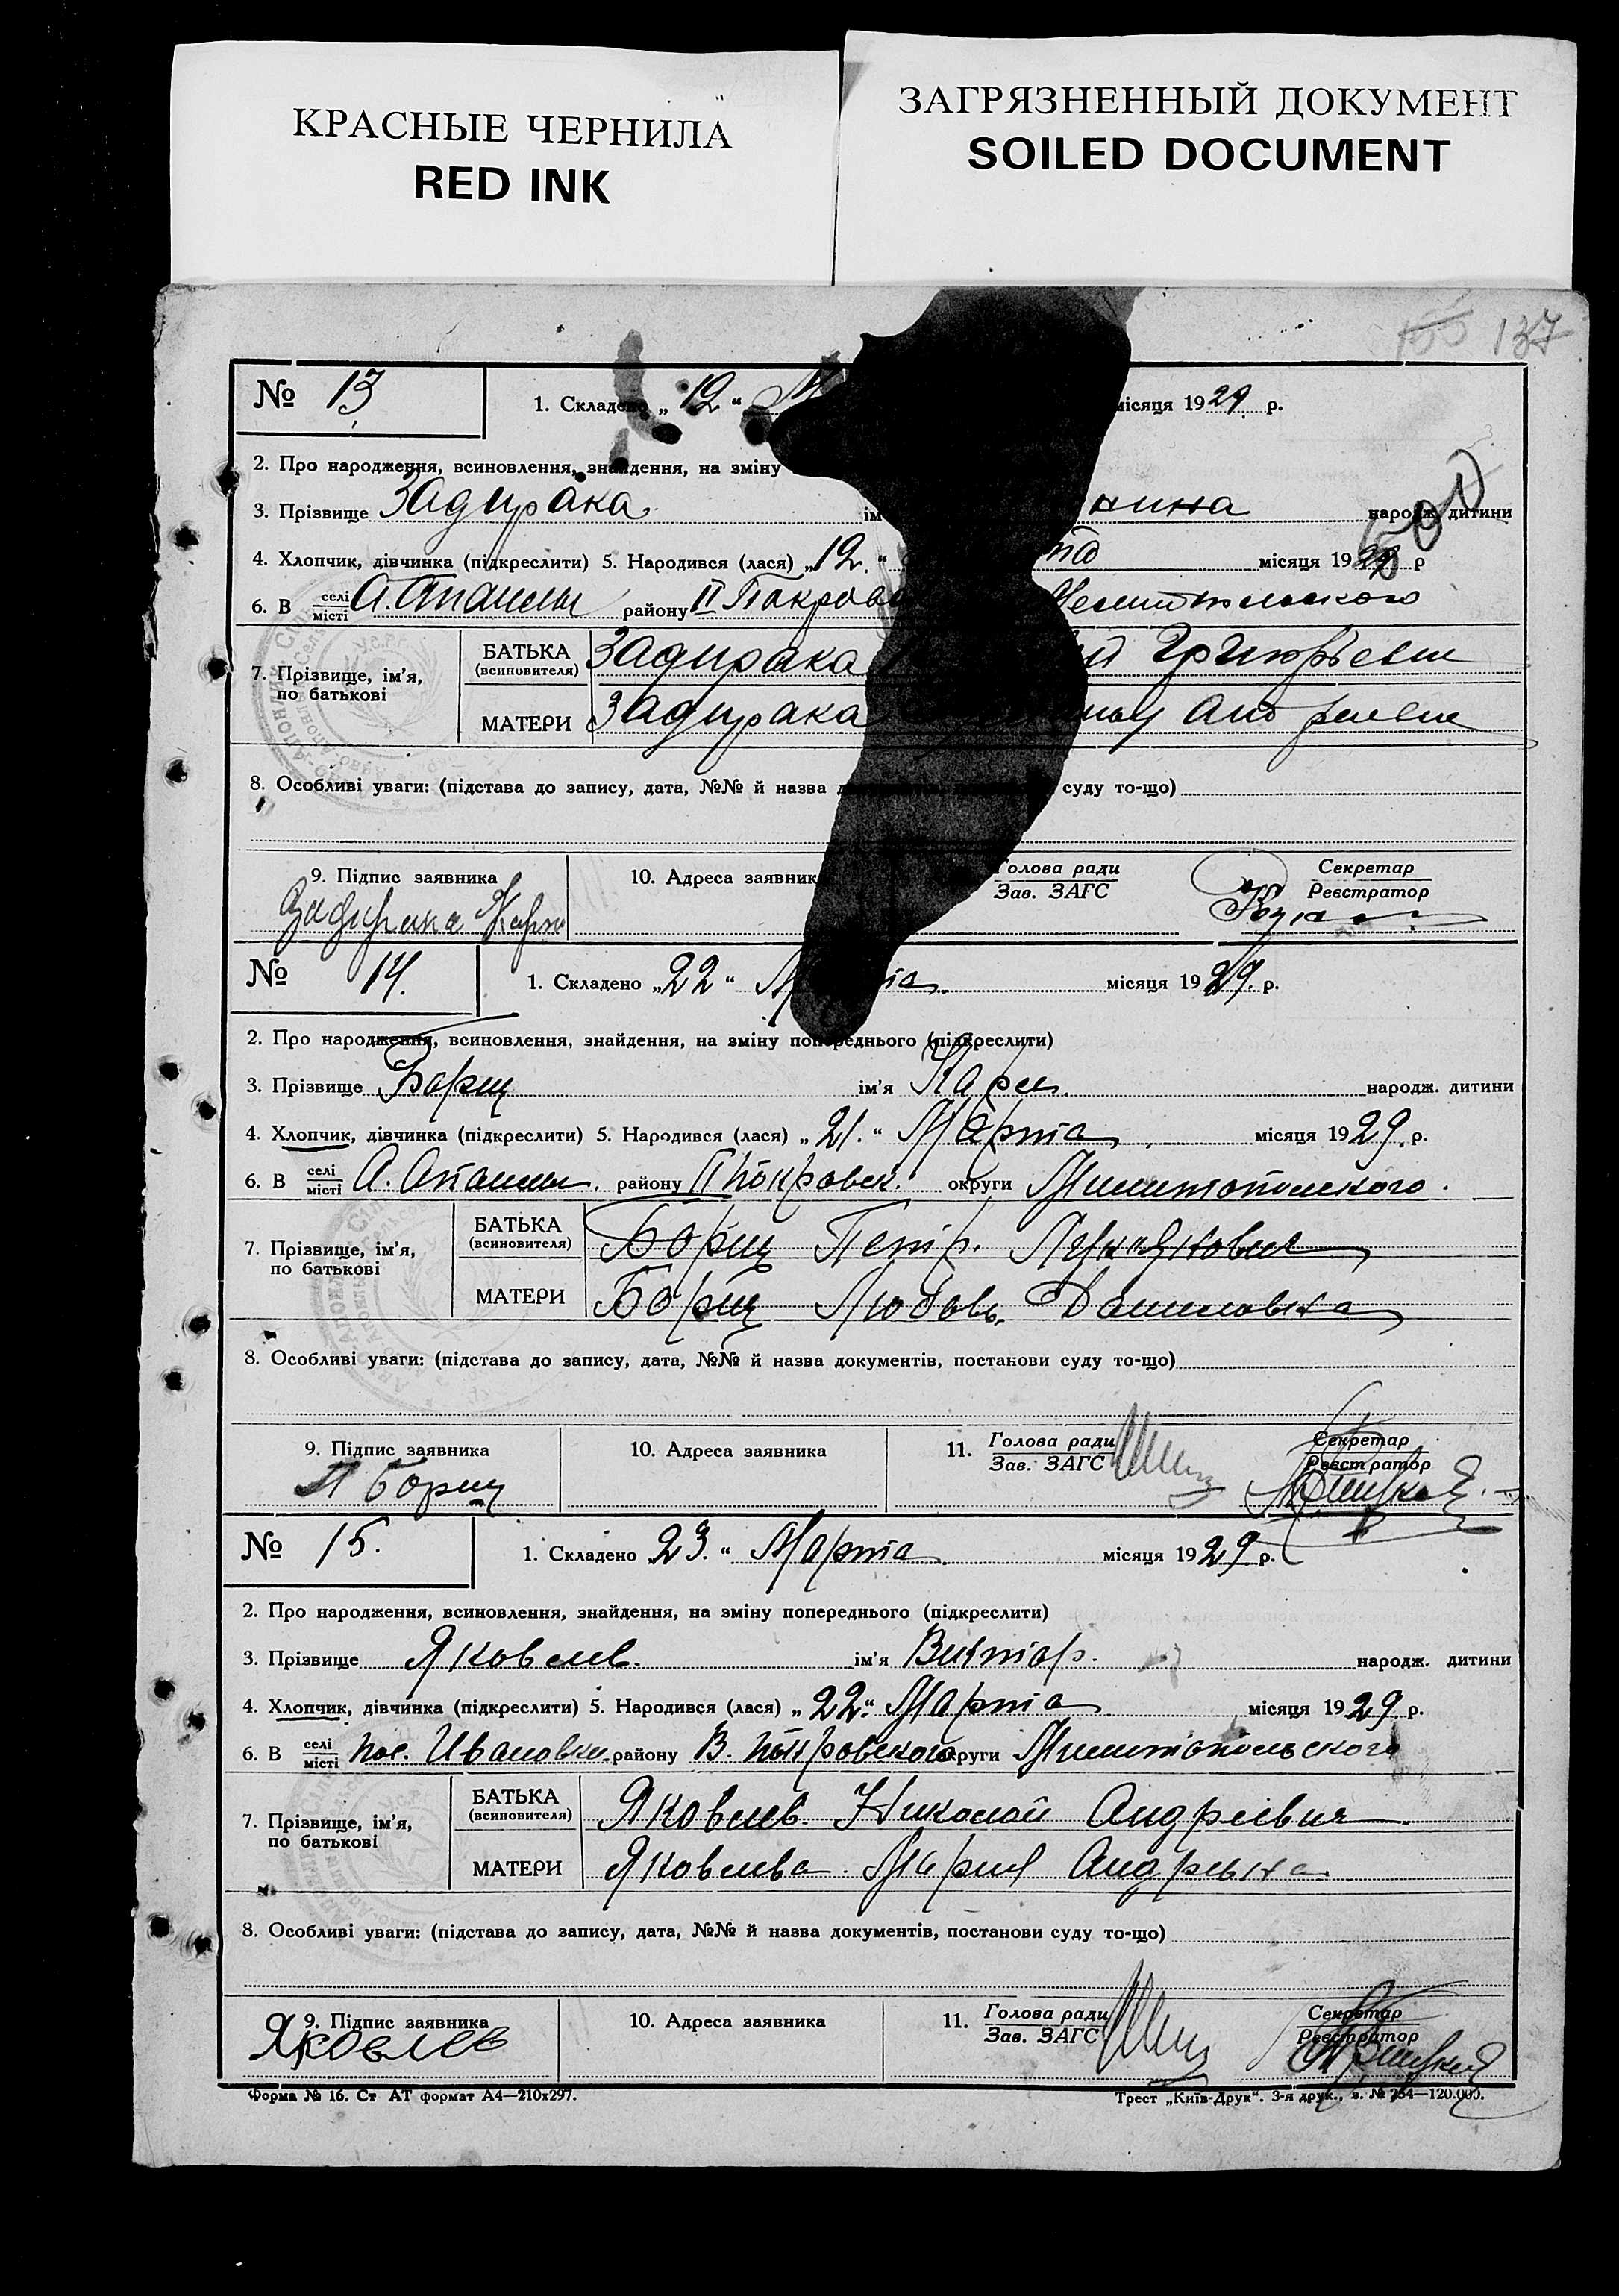 КРАСНЫЕ ЧЕРНИЛА
RED INK
ЗАГРЯЗНЕННЫЙ ДОКУМЕНТ
SOILED DOCUMENT
137
№ 13
1. Складено „12“ місяця 1929 р.
2. Про народження, всиновлення, знайдення, на зміну
3. Прізвище Задирака нина народж. дитини
4. Хлопчик, дівчинка (підкреслити) 5. Народився (лася) „12.“ місяця 1929 р
6. В селі місті А. Апаисы району II Покров
7. Прізвище, ім'я, по батькові
БАТЬКА (всиновителя) Задирака Григорьевич
МАТЕРИ Задирака
8. Особливі уваги: (підстава до запису, дата, №№ й назва суду то-що)
9. Підпис заявника
10. Адреса заявник
Голова ради
Зав. ЗАГС
Секретар
Реєстратор
Задирака
№ 14.
1. Складено „22“ Марта місяця 1929. р.
2. Про народження, всиновлення, знайдення, на зміну попереднього (підкреслити)
3. Прізвище Борщ ім'я Карл. народж. дитини
4. Хлопчик, дівчинка (підкреслити) 5. Народився (лася) „21.“ Марта місяця 1929. р.
6. В селі місті А. Апаисы. району II Покровск. округи Милитопольского.
7. Прізвище, ім'я, по батькові
БАТЬКА (всиновителя) Борщ Петр.
МАТЕРИ Борщ Любовь Даниловна
8. Особливі уваги: (підстава до запису, дата, №№ й назва документів, постанови суду то-що)
9. Підпис заявника
10. Адреса заявника
11. Голова ради
Зав. ЗАГС
Секретар
Реєстратор
П Борщ
№ 15.
1. Складено 23.“ Марта місяця 1929 р.
2. Про народження, всиновлення, знайдення, на зміну попереднього (підкреслити)
3. Прізвище Яковлев. ім'я Виктор. народж. дитини
4. Хлопчик, дівчинка (підкреслити) 5. Народився (лася) „22“ Марта місяця 1929. р.
6. В селі місті пос. Ивановка району В. Покровского округи Милитопольского
7. Прізвище, ім'я, по батькові
БАТЬКА (всиновителя) Яковлев. Николай Андреевич
МАТЕРИ Яковлева Мария Андревна.
8. Особливі уваги: (підстава до запису, дата, №№ й назва документів, постанови суду то-що)
9. Підпис заявника
10. Адреса заявника
11. Голова ради
Зав. ЗАГС
Секретар
Реєстратор
Яковлев
Форма № 16. Ст АТ формат А4—210х297.
Трест „Київ-Друк“. 3-я друк., з. № 254—120.000.